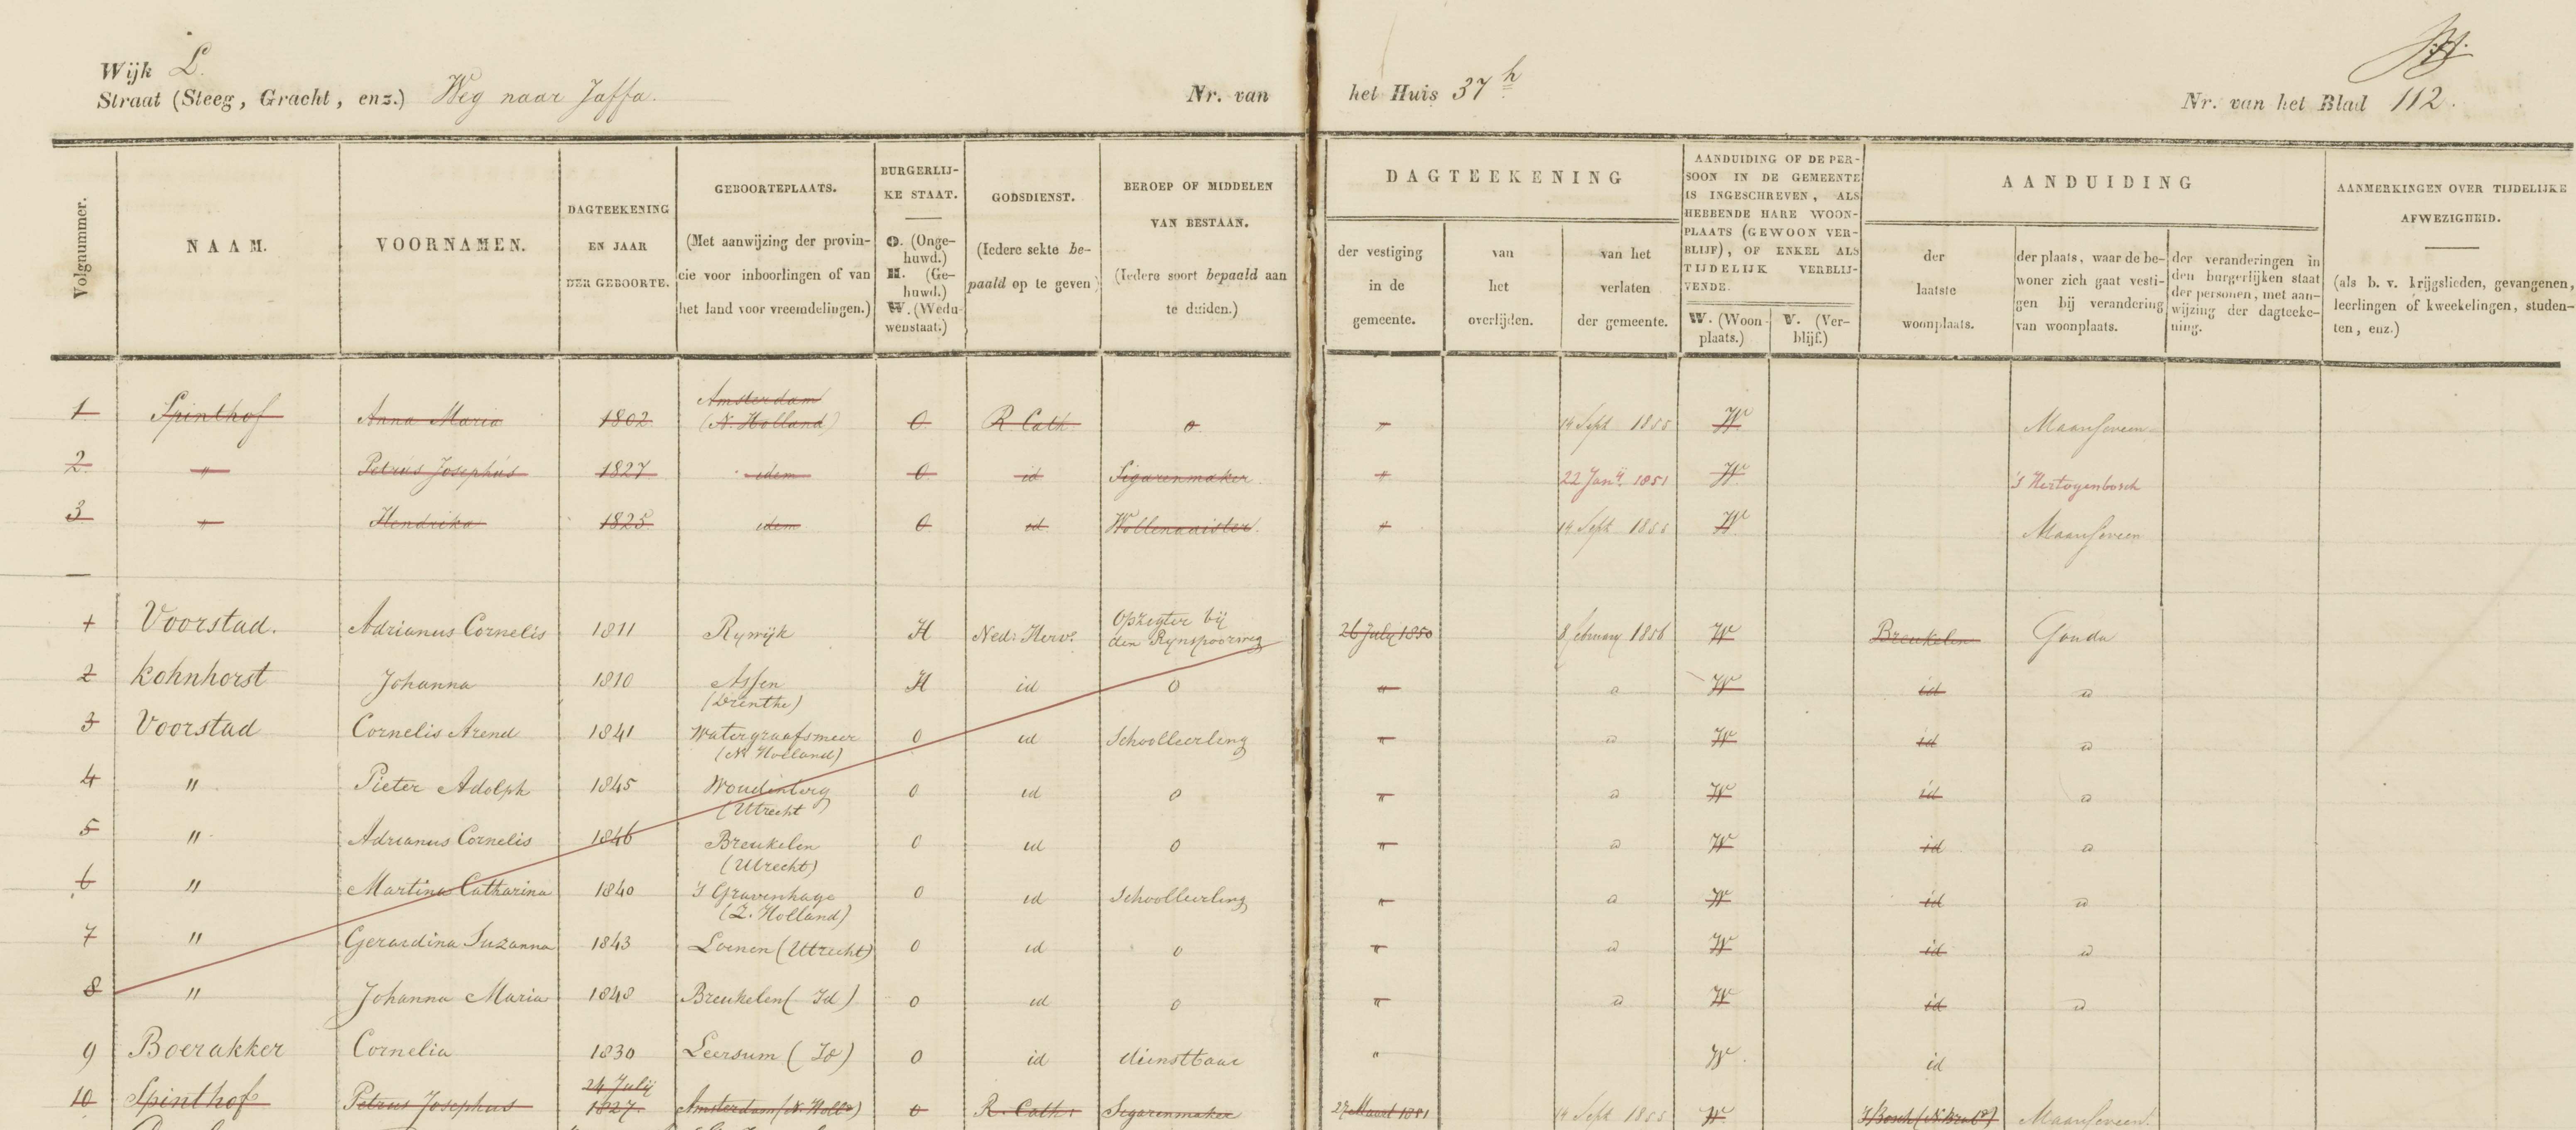 Wijk L.
Straat (Steeg, Gracht, enz.) Weg naar Jaffa. Nr. van het Huis 37h Nr. van het Blad 112.
Volgnummer.
NAAM.
VOORNAMEN.
DAGTEEKENING
EN JAAR
DER GEBOORTE.
GEBOORTEPLAATS.
(Met aanwijzing der provin-
cie voor inboorlingen of van
het land voor vreemdelingen.)
BURGERLIJ-
KE STAAT.
O. (Onge-
huwd.)
H. (Ge-
huwd.)
W. (Wedu-
wenstaat.)
GODSDIENST.
(Iedere sekte be-
paald op te geven)
BEROEP OF MIDDELEN
VAN BESTAAN.
(Iedere soort bepaald aan
te duiden.)
DAGTEEKENING
der vestiging
in de
gemeente.
van
het
overlijden.
van het
verlaten
der gemeente.
AANDUIDING OF DE PER-
SOON IN DE GEMEENTE
IS INGESCHREVEN, ALS
HEBBENDE HARE WOON-
PLAATS (GEWOON VER-
BLIJF), OF ENKEL ALS
TIJDELIJK VERBLIJ-
VENDE.
W. (Woon-
plaats.)
V. (Ver-
blijf.)
AANDUIDING
der
laatste
woonplaats.
der plaats, waar de be-
woner zich gaat vesti-
gen bij verandering
van woonplaats.
der veranderingen in
den burgerlijken staat
der personen, met aan-
wijzing der dagteeke-
ning.
AANMERKINGEN OVER TIJDELIJKE
AFWEZIGHEID.
(als b. v. krijgslieden, gevangenen,
leerlingen of kweekelingen, studen-
ten, enz.)
1 Spinthof Anna Maria 1802 Amsterdam (N. Holland) O R. Cath. o " 14 Sept 1855 W Maarseveen
2 " Petrus Josephus 1827 idem O id Sigarenmaker " 22 Janij 1851 W 's Hertogenbosch
3 " Hendrika 1825 idem O id " 14 Sept 1855 W Maarseveen
1 Voorstad. Adrianus Cornelis 1811 Ryswijk H Ned: Herve. Opzigter bij den Rynspoorweg 26 July 1850 8 february 1856 W Breukelen Gouda
2 Kohnhorst Johanna 1810 Assen (Drenthe) H id o " a W id a
3 Voorstad Cornelis Arend 1841 Watergraafsmeer (N Holland) O id Schoolleerling " a W id a
4 " Pieter Adolph 1845 Woudenberg (Utrecht) O id o " a W id a
5 " Adrianus Cornelis 1846 Breukelen (Utrecht) O id o " a W id a
6 " Martina Catharina 1840 's Gravenhage (Z. Holland) O id Schoolleerling " a W id a
7 " Gerardina Suzanna 1843 Loenen (Utrecht) O id o " a W id a
8 " Johanna Maria 1848 Breukelen (Id) O id o " a W id a
9 Boerakker Cornelia 1830 Leersum (Id) O id dienstbaar " W id
10 Spinthof Petrus Josephus 24 Julij 1827 Amsterdam (N. Holld) O R. Cath: Segarenmaker 27 Maart 1851 14 Sept 1855 W 's Bosch (N. Brabd) Maarseveen.